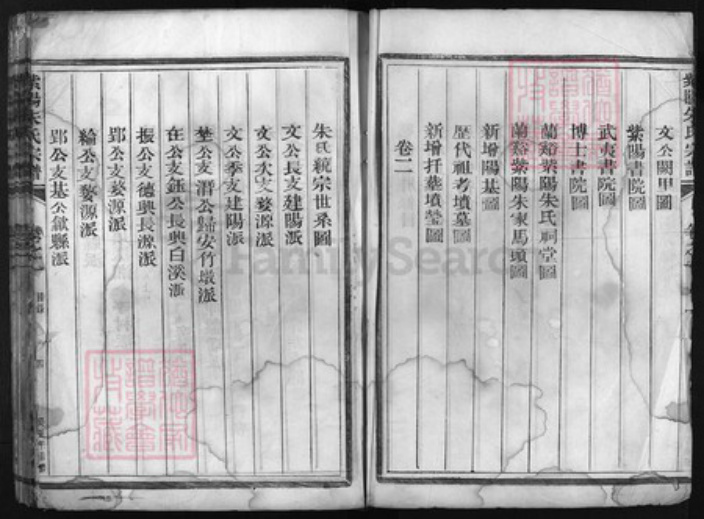 文公闕里圖
紫陽書院圖
武夷書院圖
博士書院圖
蘭谿紫陽朱氏祠堂圖
蘭谿紫陽朱家馬頭圖
新增陽基圖
歷代祖考墳墓圖
新增扦葬墳塋圖
卷二
朱氏統宗世系圖
文公長支建陽派
文公次支婺源派
文公季支建陽派
埜公支潛公歸安竹墩派
在公支鈺公長興白溪派
振公支德興長源派
郢公支婺源派
綸公支婺源派
郢公支基公歙縣派
紫陽朱氏宗譜
FamilySearch